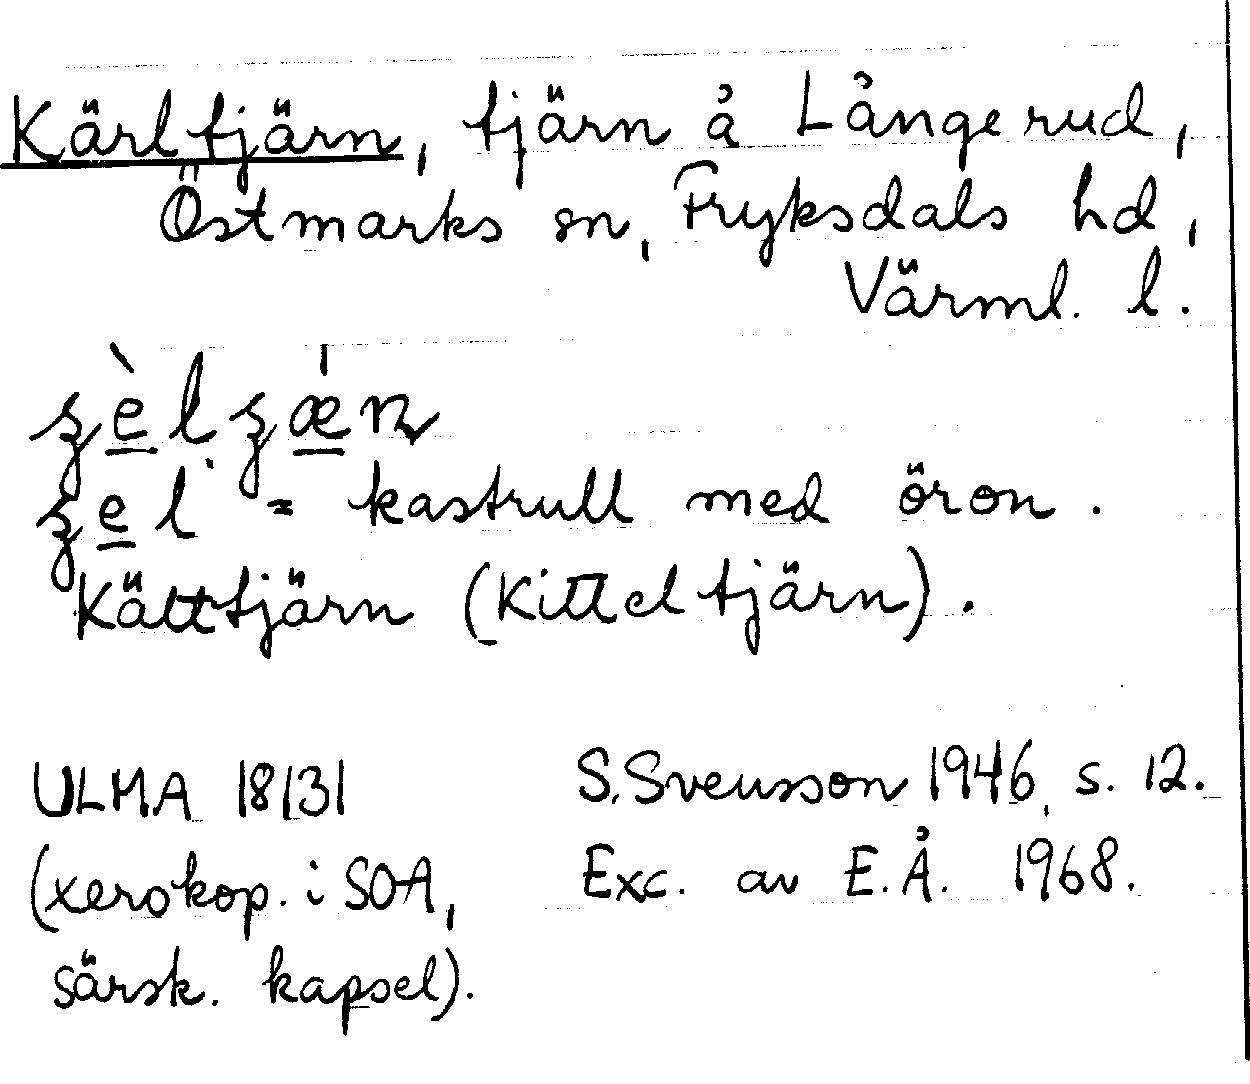 Kärltjärn, tjärn å Långerud,
Östmarks sn, Fryksdals hd,
Värml. l.
= kastrull med öron.
Kälttjärn (Kitteltjärn).
ULMA 18131 S. Svensson 1946, s. 12.
(xerokop. i SOA, Exc. av E.Å. 1968.
särsk. kapsel).